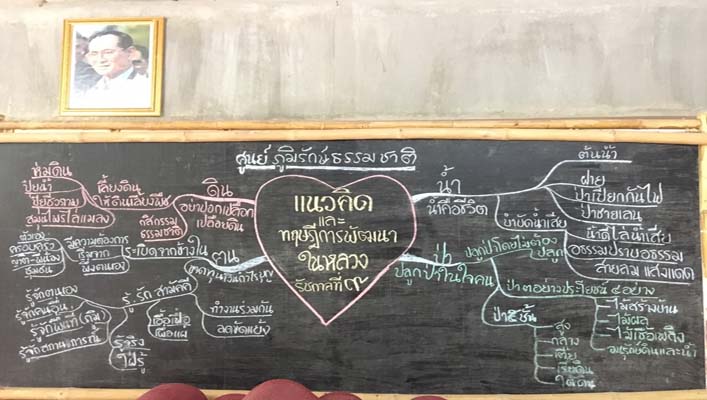 ศูนย์ ภูมิรักษ์ธรรมชาติ
แนวคิด
และ
ทฤษฎีการพัฒนา
ในหลวง
รัชกาลที่ ๙
ดิน
อย่าปอกเปลือก
เปลือยดิน
เลี้ยงดิน
ให้ดินเลี้ยงพืช
กสิกรรม
ธรรมชาติ
ห่มดิน
ปุ๋ยน้ำ
สมุนไพรไล่แมลง
น้ำ
น้ำคือชีวิต
ต้นน้ำ
ฝาย
ป่าเปียกกันไฟ
ป่าชายเลน
บำบัดน้ำเสีย
น้ำดีไล่น้ำเสีย
อธรรมปราบอธรรม
สายลม แสงแดด
ป่า
ปลูกป่าในใจคน
ปลูกป่าโดยไม่ต้อง
ปลูก
ป่า ๓ อย่าง ประโยชน์ ๔ อย่าง
ไม้สร้างบ้าน
ไม้ผล
ไม้เชื้อเพลิง
อนุรักษ์ดินและน้ำ
สูง
กลาง
เตี้ย
เรี่ยดิน
ใต้ดิน
คน
ระเบิดจากข้างใน
มีความต้องการ
เริ่มจาก
ตัวเอง
ครอบครัว
ชุมชน
รู้ รัก สามัคคี
ทำงานร่วมกัน
ลดขัดแย้ง
เอื้อเฟื้อ
เผื่อแผ่
รู้จริง
ใฝ่รู้
รู้จักตนเอง
รู้จักคนอื่น